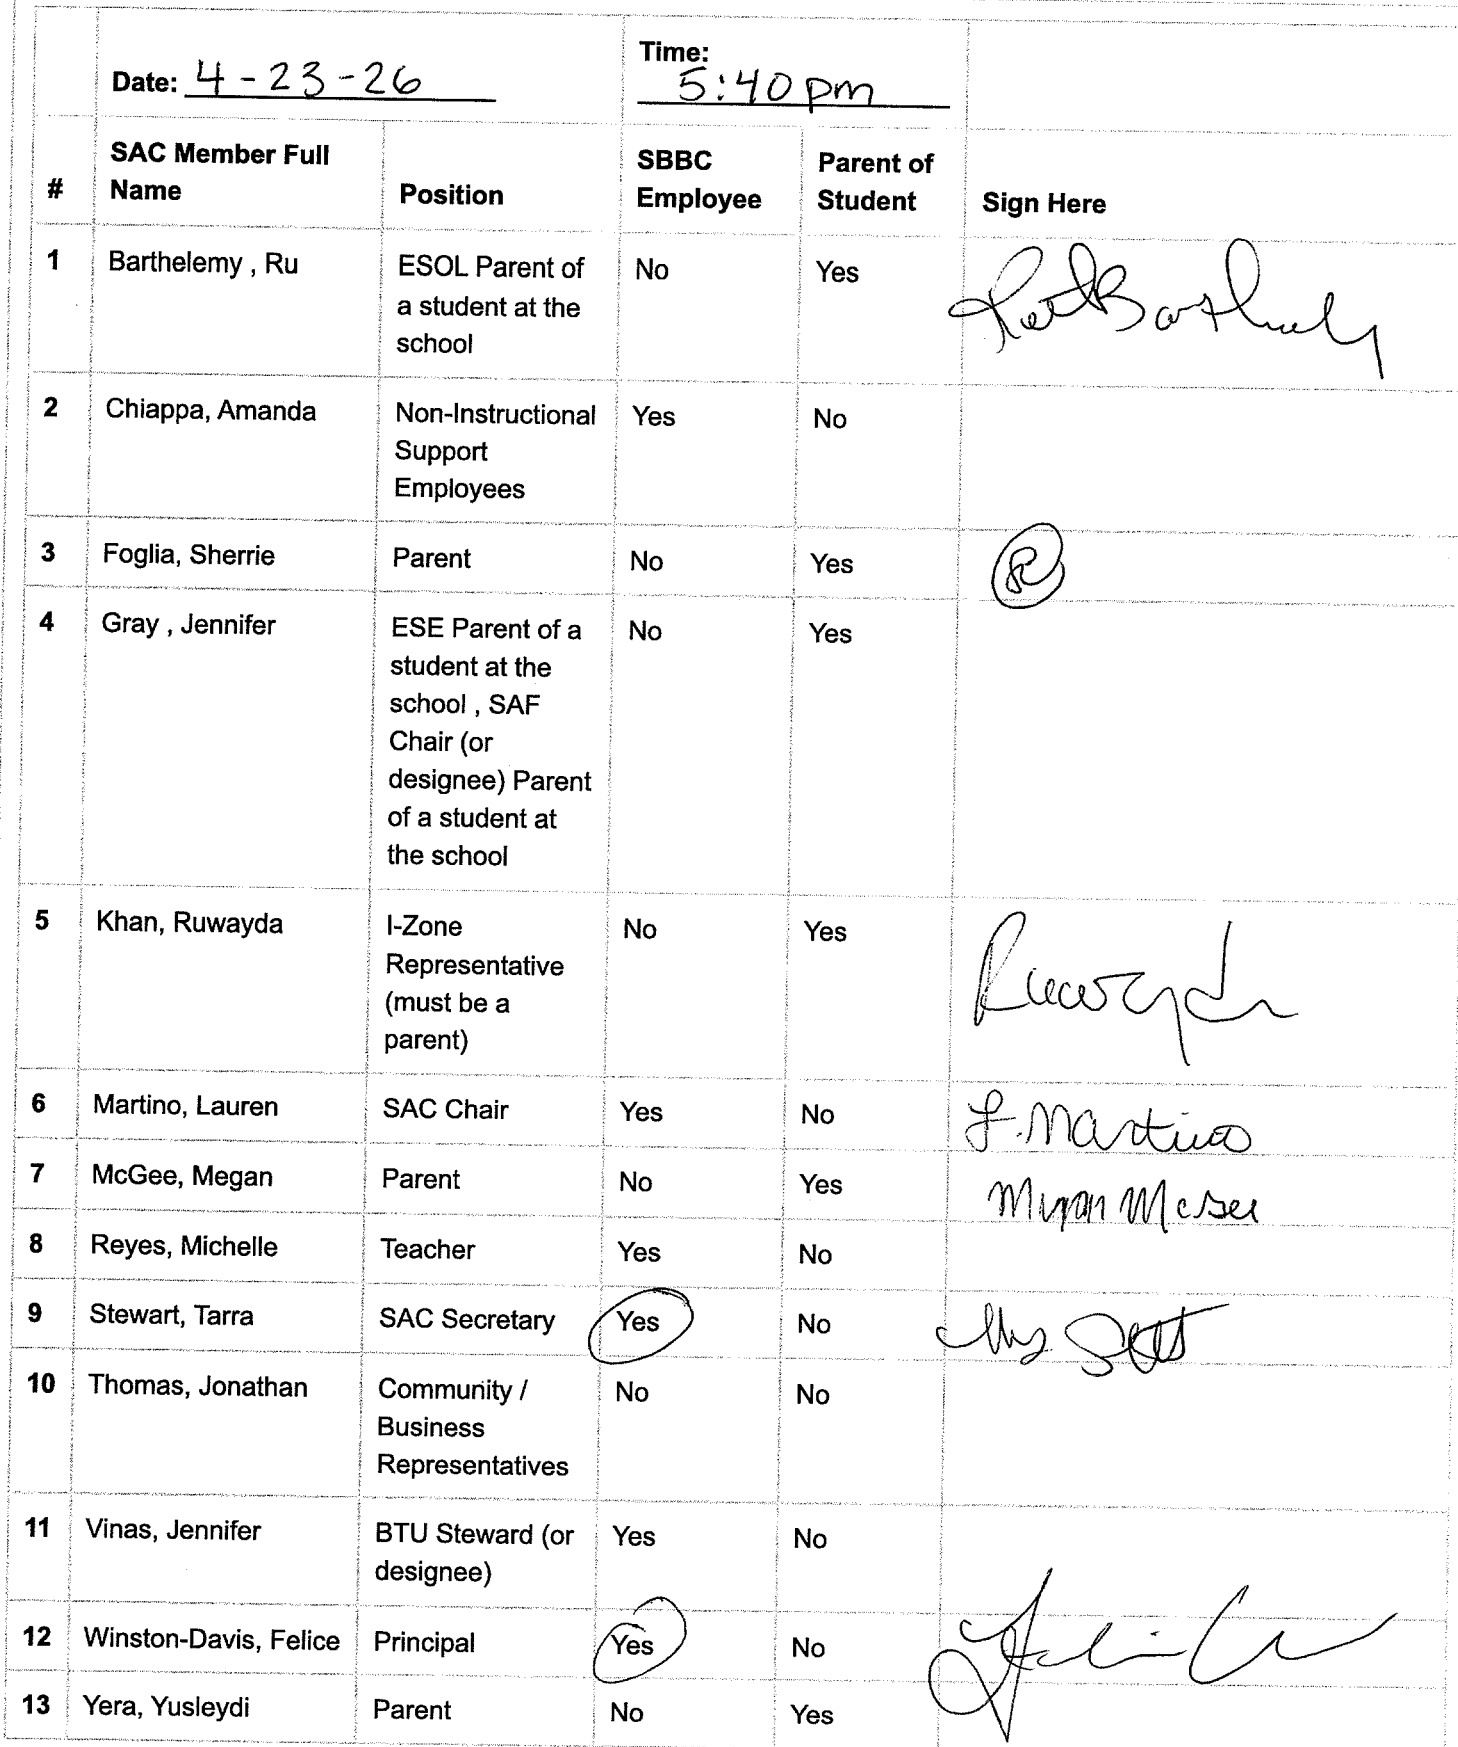 Date: 4-23-26 Time: 5:40pm
# SAC Member Full Name Position SBBC Employee Parent of Student Sign Here
1 Barthelemy , Ru ESOL Parent of No Yes
a student at the
school
2 Chiappa, Amanda Non-Instructional Yes No
Support
Employees
3 Foglia, Sherrie Parent No Yes R
4 Gray , Jennifer ESE Parent of a No Yes
student at the
school , SAF
Chair (or
designee) Parent
of a student at
the school
5 Khan, Ruwayda I-Zone No Yes Ruwayda
Representative
(must be a
parent)
6 Martino, Lauren SAC Chair Yes No L. Martino
7 McGee, Megan Parent No Yes Megan McGee
8 Reyes, Michelle Teacher Yes No
9 Stewart, Tarra SAC Secretary Yes No
10 Thomas, Jonathan Community / No No
Business
Representatives
11 Vinas, Jennifer BTU Steward (or Yes No
designee)
12 Winston-Davis, Felice Principal Yes No
13 Yera, Yusleydi Parent No Yes